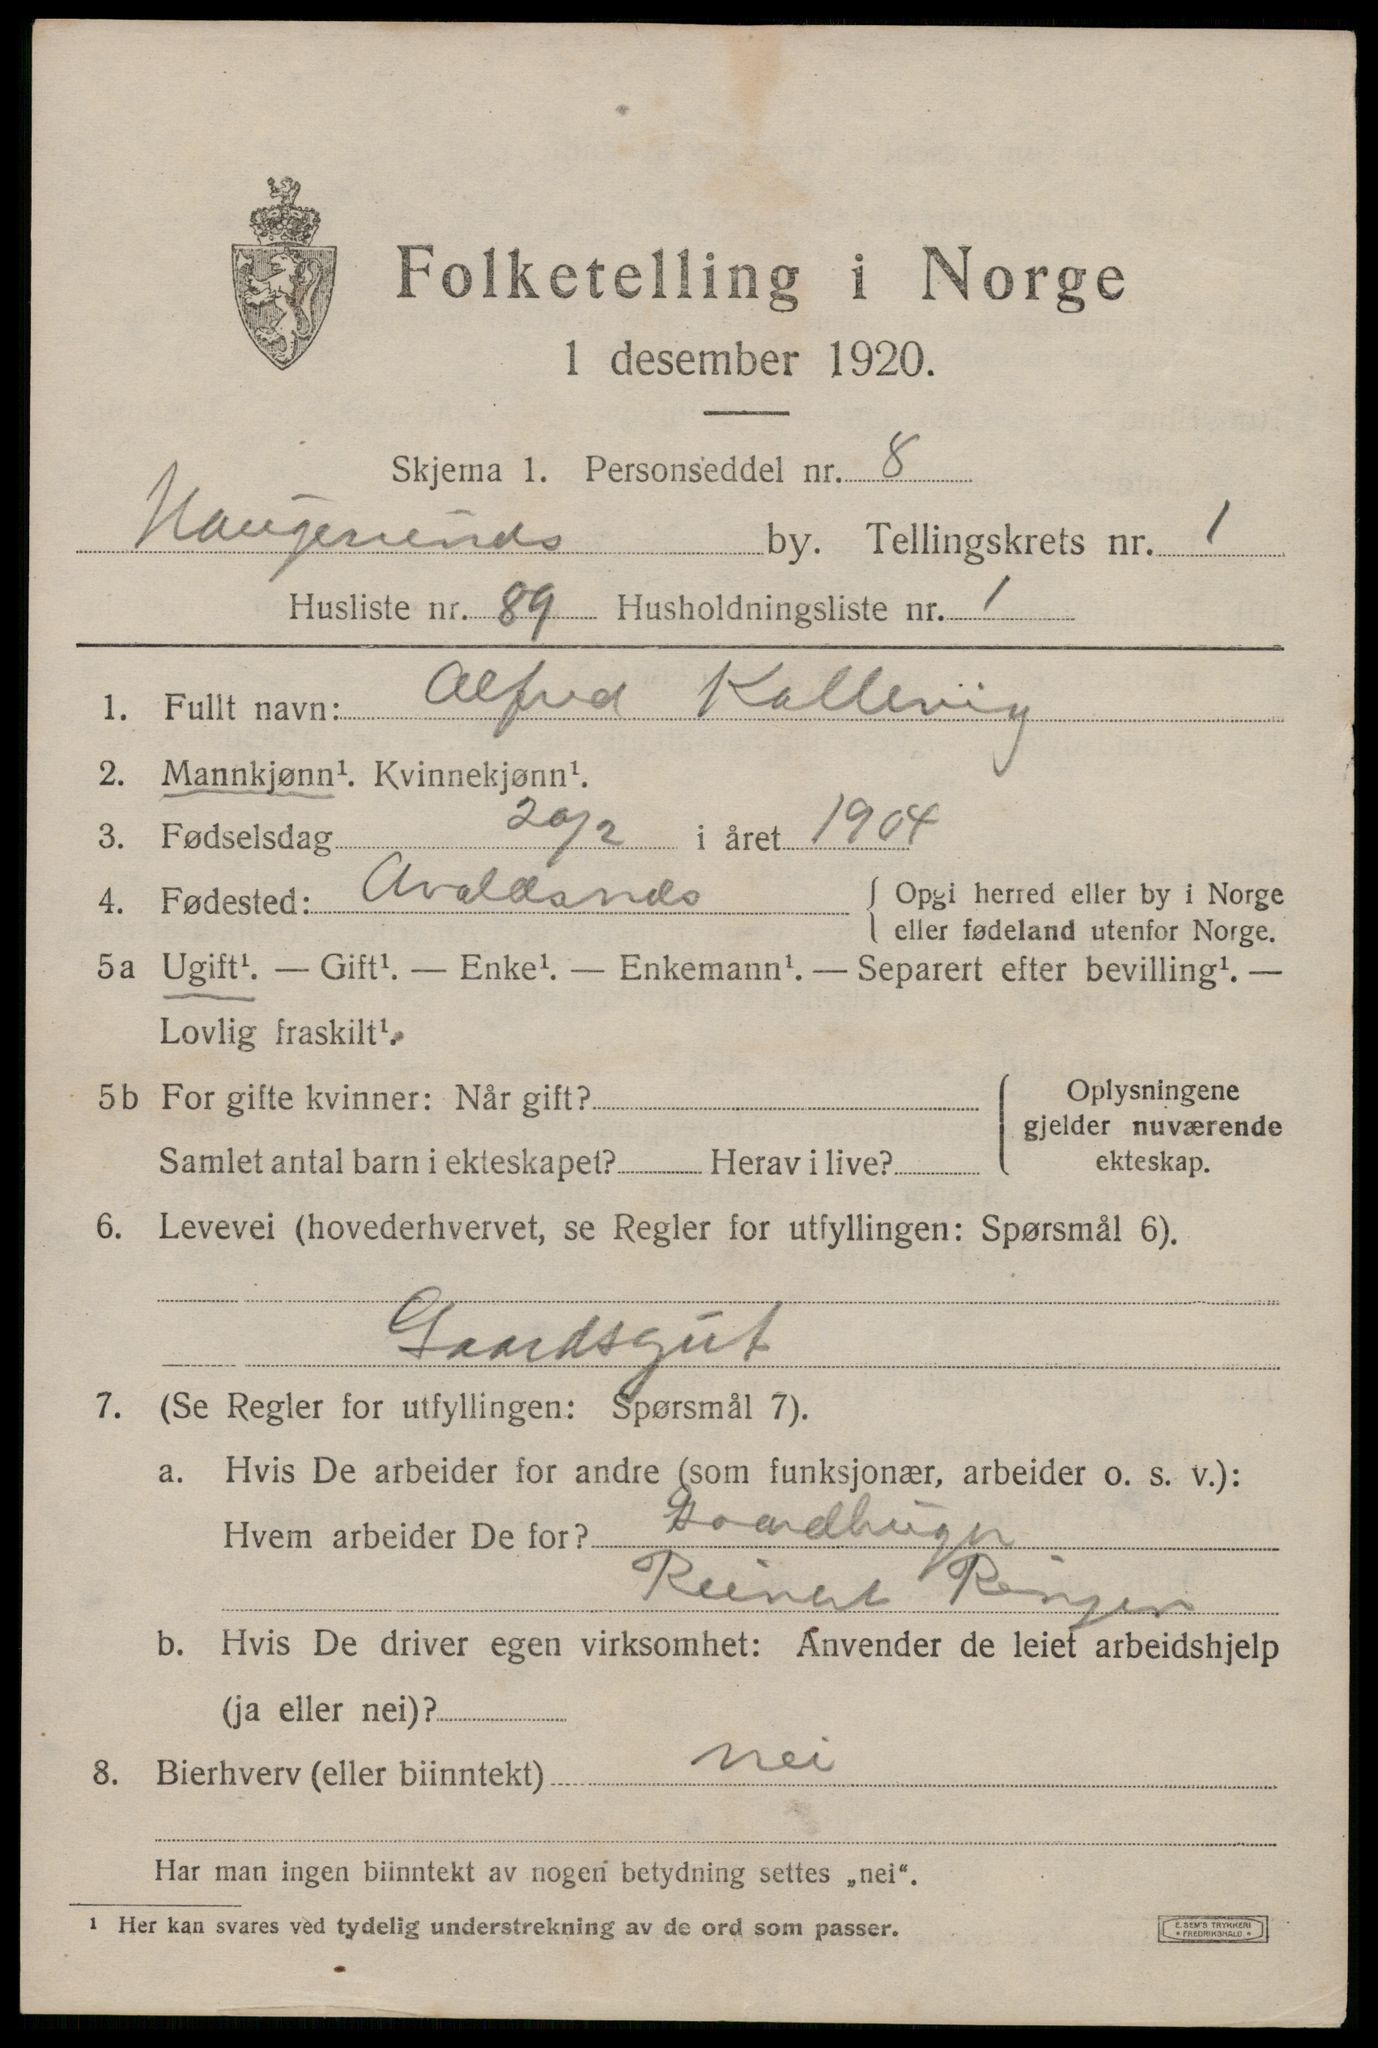 Folketelling i Norge
1 desember 1920.
Skjema 1. Personseddel nr. 8
Haugesunds by. Tellingskrets nr. 1
Husliste nr. 89 Husholdningsliste nr. 1
1. Fullt navn: Alfred Kallevig
2. Mannkjønn¹. Kvinnekjønn¹.
3. Fødselsdag 20/2 i året 1904
4. Fødested: Avaldsnes { Opgi herred eller by i Norge
eller fødeland utenfor Norge.
5a Ugift¹. — Gift¹. — Enke¹. — Enkemann¹. — Separert efter bevilling¹. —
Lovlig fraskilt¹.
5b For gifte kvinner: Når gift? { Oplysningene
gjelder nuværende
Samlet antal barn i ekteskapet? Herav i live? ekteskap.
6. Levevei (hovederhvervet, se Regler for utfyllingen: Spørsmål 6).
Gaardsgut
7. (Se Regler for utfyllingen: Spørsmål 7).
a. Hvis De arbeider for andre (som funksjonær, arbeider o. s. v.):
Hvem arbeider De for? Gaardbruger
Reinert Ringen
b. Hvis De driver egen virksomhet: Anvender de leiet arbeidshjelp
(ja eller nei)?
8. Bierhverv (eller biinntekt) nei
Har man ingen biinntekt av nogen betydning settes „nei“.
¹ Her kan svares ved tydelig understrekning av de ord som passer.
E. SEM'S TRYKKERI
* FREDRIKSHALD *